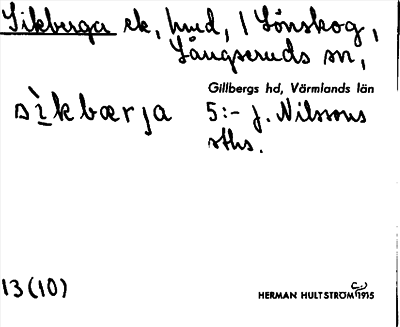 Sikberga ek, hmd, / Lönskog,
Långseruds sn,
Gillbergs hd, Värmlands län
sìkbærja 5:- J. Nilssons
sths.
13(10)
HERMAN HULTSTRÖM 1915